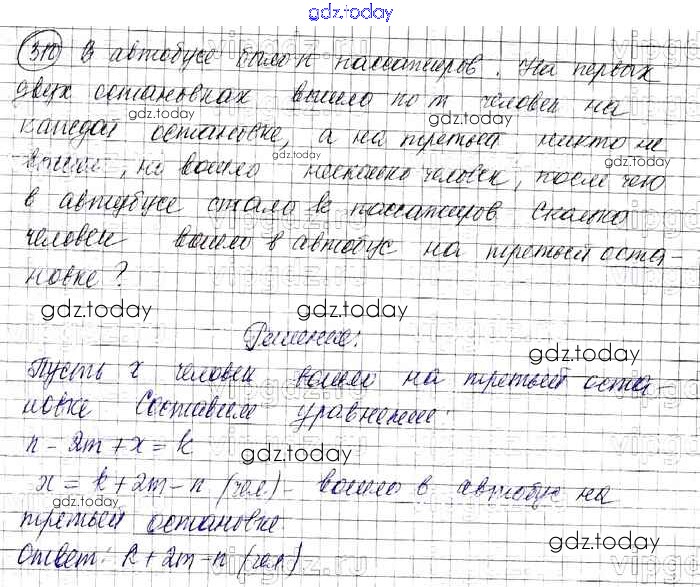 gdz.today
310 В автобусе было n пассажиров. На первых
двух остановках вышло по m человек на
каждой остановке, а на третьей никто не
вышел, но вошло несколько человек, после чего
в автобусе стало k пассажиров Сколько
человек вошло в автобус на третьей оста-
новке?
gdz.today
gdz.today
Решение:
gdz.today
Пусть x человек вошло на третьей оста-
новке Составим уравнение:
n - 2m + x = k
gdz.today
x = k + 2m - n (чел) - вошло в автобус на
gdz.today
третьей остановке
gdz.today
Ответ: k + 2m - n (чел)